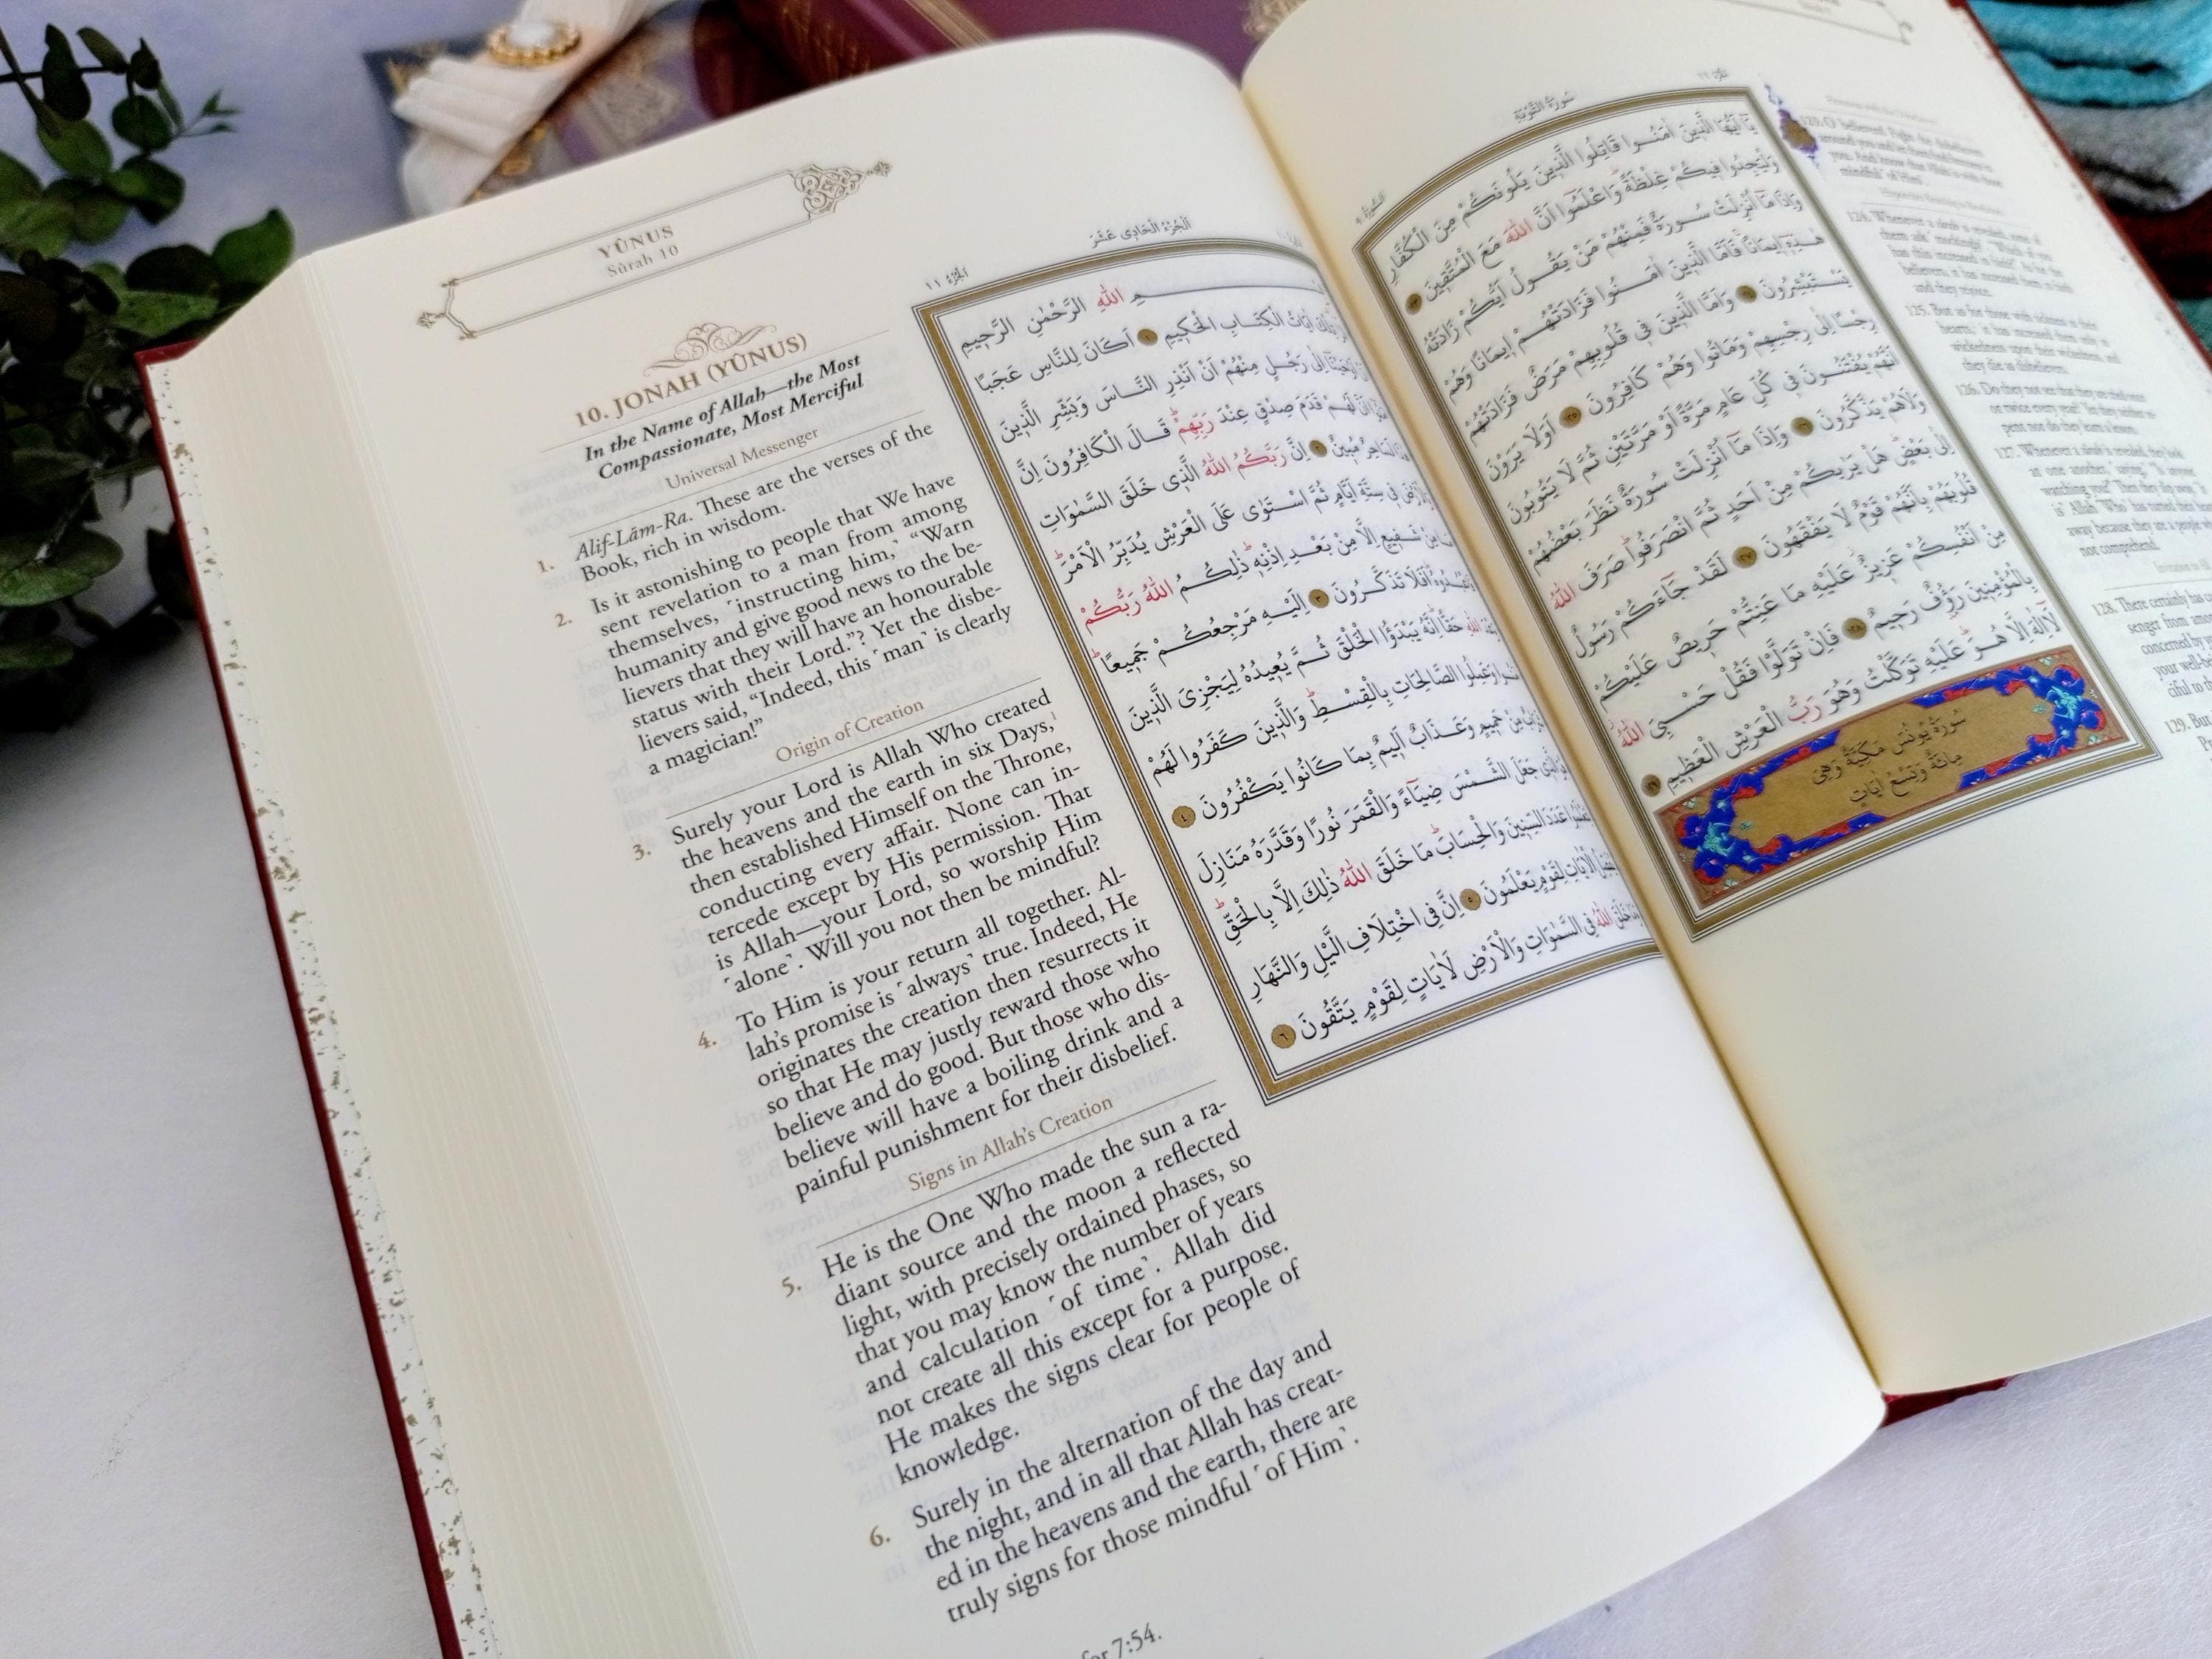 YÛNUS
Sûrah 10
10. JONAH (YÛNUS)
In the Name of Allah—the Most
Compassionate, Most Merciful
Universal Messenger
1. Alif-Lãm-Ra. These are the verses of the
Book, rich in wisdom.
2. Is it astonishing to people that We have
sent revelation to a man from among
themselves, ˹instructing him,˺ “Warn
humanity and give good news to the be-
lievers that they will have an honourable
status with their Lord.”? Yet the disbe-
lievers said, “Indeed, this ˹man˺ is clearly
a magician!”
Origin of Creation
3. Surely your Lord is Allah Who created
the heavens and the earth in six Days,¹
then established Himself on the Throne,
conducting every affair. None can in-
tercede except by His permission. That
is Allah—your Lord, so worship Him
˹alone˺. Will you not then be mindful?
4. To Him is your return all together. Al-
lah’s promise is ˹always˺ true. Indeed, He
originates the creation then resurrects it
so that He may justly reward those who
believe and do good. But those who dis-
believe will have a boiling drink and a
painful punishment for their disbelief.
Signs in Allah’s Creation
5. He is the One Who made the sun a ra-
diant source and the moon a reflected
light, with precisely ordained phases, so
that you may know the number of years
and calculation ˹of time˺. Allah did
not create all this except for a purpose.
He makes the signs clear for people of
knowledge.
6. Surely in the alternation of the day and
the night, and in all that Allah has creat-
ed in the heavens and the earth, there are
truly signs for those mindful ˹of Him˺.
for 7:54.
اَلْجُزْءُ الْحَادِى عَشَرَ
اَلْجُزْءُ ١١
اللهِ الرَّحْمٰنِ الرَّحِيمِ
اٰيَاتُ الْكِتَابِ الْحَكِيمِ ١ اَكَانَ لِلنَّاسِ عَجَبًا
اِلٰى رَجُلٍ مِنْهُمْ اَنْ اَنْذِرِ النَّاسَ وَبَشِّرِ الَّذِينَ
اَنَّ لَهُمْ قَدَمَ صِدْقٍ عِنْدَ رَبِّهِمْ قَالَ الْكَافِرُونَ اِنَّ
لَسَاحِرٌ مُبِينٌ ٢ اِنَّ رَبَّكُمُ اللهُ الَّذِى خَلَقَ السَّمٰوَاتِ
فِى سِتَّةِ اَيَّامٍ ثُمَّ اسْتَوٰى عَلَى الْعَرْشِ يُدَبِّرُ الْاَمْرَ
مِنْ شَفِيعٍ اِلَّا مِنْ بَعْدِ اِذْنِهٖ ذٰلِكُمُ اللهُ رَبُّكُمْ
اَفَلَا تَذَكَّرُونَ ٣ اِلَيْهِ مَرْجِعُكُمْ جَمِيعًا
اللهِ حَقًّا اِنَّهُ يَبْدَؤُا الْخَلْقَ ثُمَّ يُعِيدُهُ لِيَجْزِىَ الَّذِينَ
وَعَمِلُوا الصَّالِحَاتِ بِالْقِسْطِ وَالَّذِينَ كَفَرُوا لَهُمْ
مِنْ حَمِيمٍ وَعَذَابٌ اَلِيمٌ بِمَا كَانُوا يَكْفُرُونَ ٤
جَعَلَ الشَّمْسَ ضِيَاءً وَالْقَمَرَ نُورًا وَقَدَّرَهُ مَنَازِلَ
عَدَدَ السِّنِينَ وَالْحِسَابَ مَا خَلَقَ اللهُ ذٰلِكَ اِلَّا بِالْحَقِّ
الْاٰيَاتِ لِقَوْمٍ يَعْلَمُونَ ٥ اِنَّ فِى اخْتِلَافِ الَّيْلِ وَالنَّهَارِ
خَلَقَ اللهُ فِى السَّمٰوَاتِ وَالْاَرْضِ لَاٰيَاتٍ لِقَوْمٍ يَتَّقُونَ ٦
سُورَةُ التَّوْبَةِ
يَا اَيُّهَا الَّذِينَ اٰمَنُوا قَاتِلُوا الَّذِينَ يَلُونَكُمْ مِنَ الْكُفَّارِ
وَلْيَجِدُوا فِيكُمْ غِلْظَةً وَاعْلَمُوا اَنَّ اللهَ مَعَ الْمُتَّقِينَ ١٢٣
وَاِذَا مَا اُنْزِلَتْ سُورَةٌ فَمِنْهُمْ مَنْ يَقُولُ اَيُّكُمْ زَادَتْهُ
هٰذِهٖ اِيمَانًا فَاَمَّا الَّذِينَ اٰمَنُوا فَزَادَتْهُمْ اِيمَانًا وَهُمْ
يَسْتَبْشِرُونَ ١٢٤ وَاَمَّا الَّذِينَ فِى قُلُوبِهِمْ مَرَضٌ فَزَادَتْهُمْ
رِجْسًا اِلٰى رِجْسِهِمْ وَمَاتُوا وَهُمْ كَافِرُونَ ١٢٥ اَوَلَا يَرَوْنَ
اَنَّهُمْ يُفْتَنُونَ فِى كُلِّ عَامٍ مَرَّةً اَوْ مَرَّتَيْنِ ثُمَّ لَا يَتُوبُونَ
وَلَا هُمْ يَذَّكَّرُونَ ١٢٦ وَاِذَا مَا اُنْزِلَتْ سُورَةٌ نَظَرَ بَعْضُهُمْ
اِلٰى بَعْضٍ هَلْ يَرٰيكُمْ مِنْ اَحَدٍ ثُمَّ انْصَرَفُوا صَرَفَ اللهُ
قُلُوبَهُمْ بِاَنَّهُمْ قَوْمٌ لَا يَفْقَهُونَ ١٢٧ لَقَدْ جَاءَكُمْ رَسُولٌ
مِنْ اَنْفُسِكُمْ عَزِيزٌ عَلَيْهِ مَا عَنِتُّمْ حَرِيصٌ عَلَيْكُمْ
بِالْمُؤْمِنِينَ رَؤُفٌ رَحِيمٌ ١٢٨ فَاِنْ تَوَلَّوْا فَقُلْ حَسْبِىَ اللهُ
لَا اِلٰهَ اِلَّا هُوَ عَلَيْهِ تَوَكَّلْتُ وَهُوَ رَبُّ الْعَرْشِ الْعَظِيمِ ١٢٩
سُورَةُ يُونُسَ مَكِّيَّةٌ وَهِىَ
مِائَةٌ وَتِسْعُ اٰيَاتٍ
125. But as for those with sickness in their
126. Do they not see that they are tried once
or twice every year? Yet they neither re-
pent nor do they learn a lesson.
127. Whenever a sûrah is revealed, they look
at one another,
away because they are a people
not comprehend.
128. There certainly has
senger from am
concerned by
your well-be
ciful to th
129. But